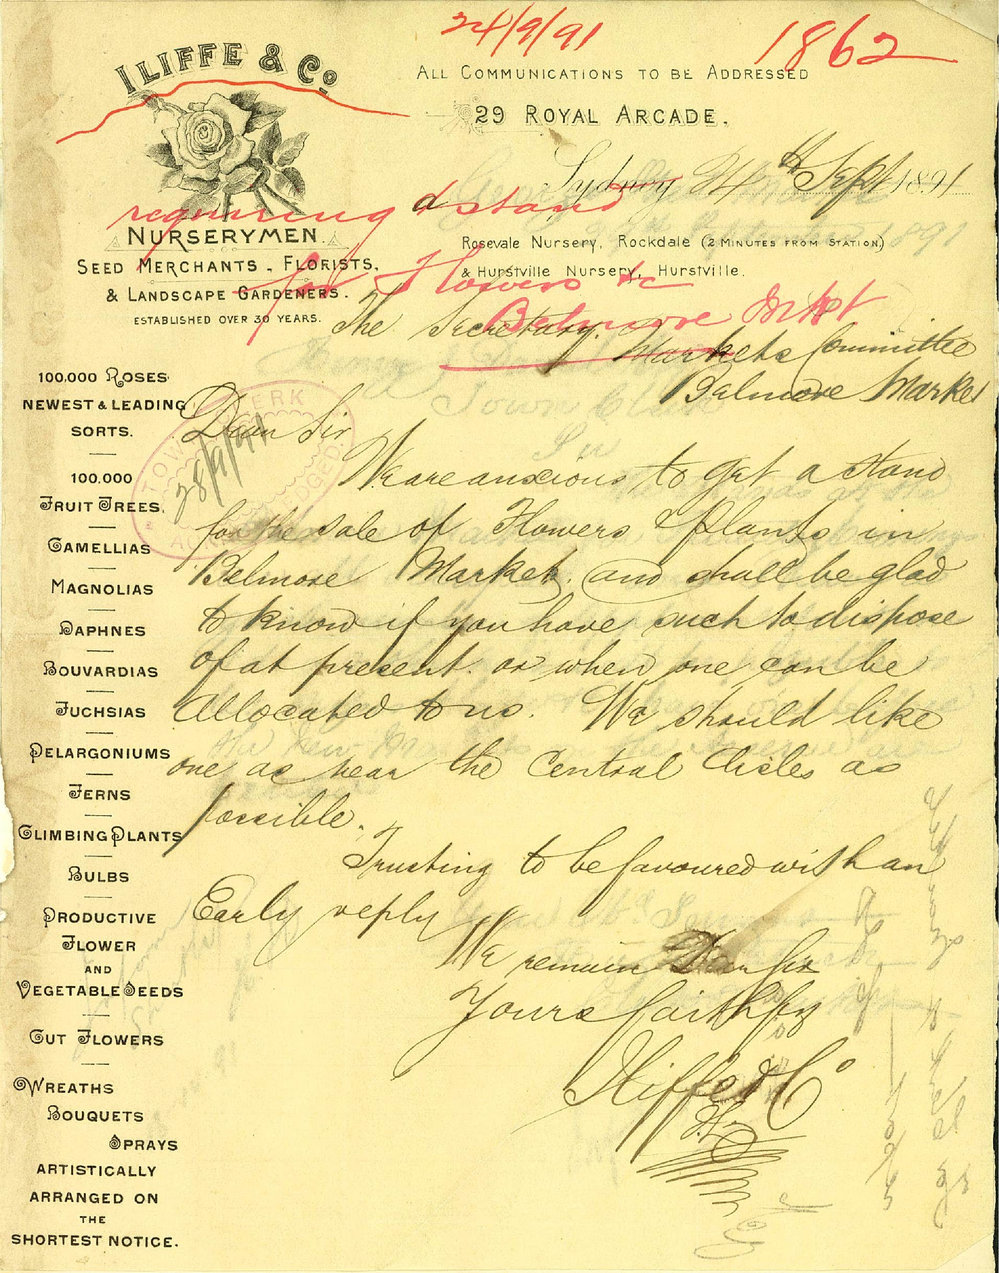 24/9/91
1862
ILIFFE & Co
ALL COMMUNICATIONS TO BE ADDRESSED
29 ROYAL ARCADE.
Sydney 24th Sept 1891
requiring a stand
for Flowers &c
Belmore Mkt
NURSERYMEN.
SEED MERCHANTS, FLORISTS,
& LANDSCAPE GARDENERS.
ESTABLISHED OVER 30 YEARS.
ROSEVALE NURSERY, ROCKDALE (2 MINUTES FROM STATION)
& HURSTVILLE NURSERY, HURSTVILLE.
The Secretary,
Markets Committee
Belmore Market
Dear Sir
We are anxious to get a stand
for the sale of Flowers & Plants in
Belmore Market, and shall be glad
to know if you have such to dispose
of at present or when one can be
allocated to us. We should like
one as near the Central Aisles as
possible.
Trusting to be favoured with an
Early reply
We remain Dear Sir
Yours faithfy
Iliffe & Co
TOWN CLERK
28/9/91
ACKNOWLEDGED
100,000 ROSES
NEWEST & LEADING
SORTS.
100,000
FRUIT TREES,
CAMELLIAS
MAGNOLIAS
DAPHNES
BOUVARDIAS
FUCHSIAS
PELARGONIUMS
FERNS
CLIMBING PLANTS
BULBS
PRODUCTIVE
FLOWER
AND
VEGETABLE SEEDS
CUT FLOWERS
WREATHS
BOUQUETS
SPRAYS
ARTISTICALLY
ARRANGED ON
THE
SHORTEST NOTICE.